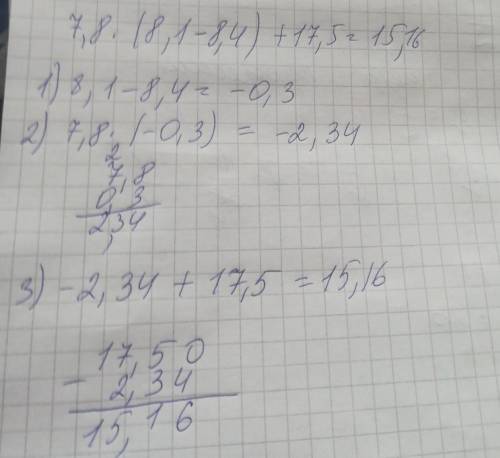 7,8 · (8,1-8,4) +17,5= 15,16
1) 8,1-8,4= -0,3
2) 7,8 · (-0,3) = -2,34
2
7,8
0,3
2,34
3) -2,34 + 17,5 = 15,16
17,50
- 2,34
15,16